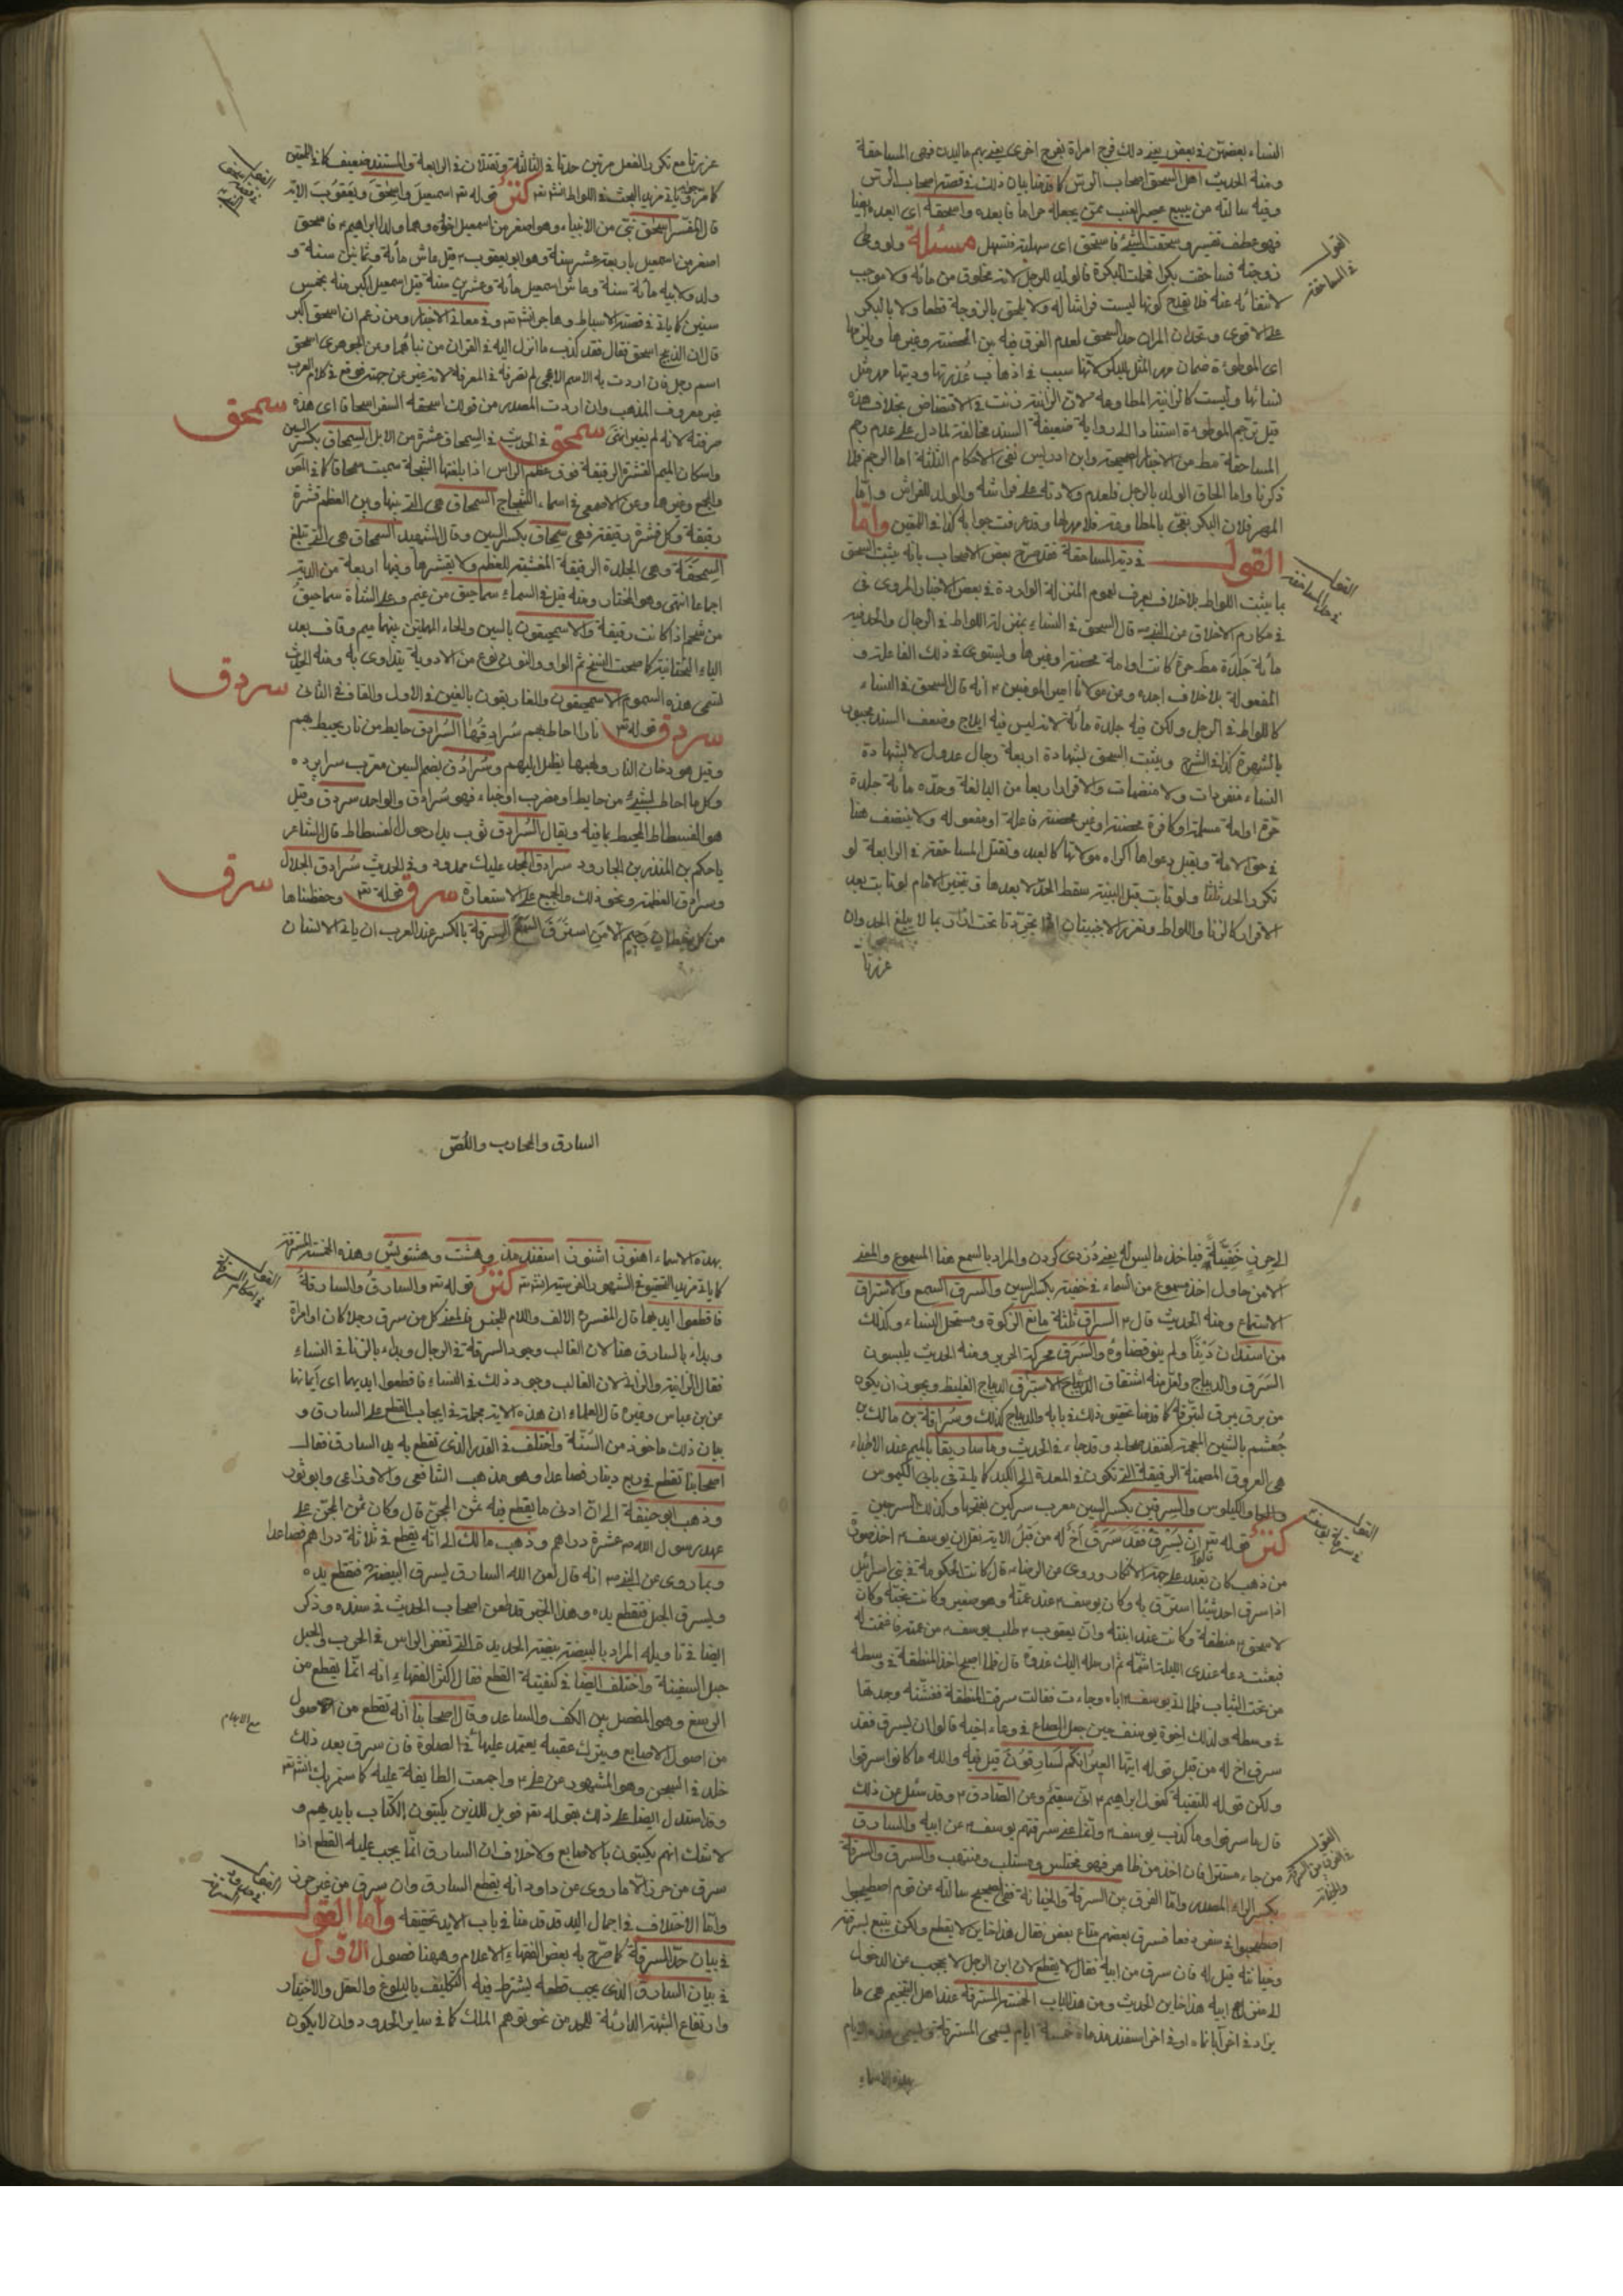 النساء بعضهن في بعض يعني دلك فرج امراة بفرج اخرى يعني بهم ماليدن فهي المساحقة
ومنه الحديث اهل السحق اصحاب الرس كما قدمنا بيان ذلك في قصة اصحاب الرس
وفيه سالته عن يبيع عصير العنب ممن يجعله حراما فابعده واسحقه اى ابعده ايضا
فهو عطف تفسير وسحقت الشئ فانسحق اى سهلته فتسهل مسئلة ولو وطى
زوجته فساحقت بكرا فحملت البكرة فالولد للرجل لانه مخلوق من مائه ولا موجب
لانتفائه عنه فلا يقدح كونها ليست فراشا له ولا يلحق بالزوجة قطعا ولا بالبكر
على الاقوى وتحدان المراتان حد السحق لعدم الفرق فيه بين المحصنة وغيرها ويلزمها
اى الموطوءة ضمان مهر المثل للبكر لانها سبب في اذهاب عذرتها وديتها مهر مثل
نسائها وليست كالزانية المطاوعة لان الزانية اذنت في الاقتضاض بخلاف هذه
قيل ترجم الموطوءة استنادا الى رواية ضعيفة السند مخالفة لما دل على عدم رجم
المساحقة مط من الاخبار الصحيحة وابن ادريس نفى الاحكام الثلثة اما الرجم فلما
ذكرنا واما الحاق الولد بالرجل فلعدم ولادته على فراشه والولد للفراش واما
المهر فلان البكر بغى بالمطاوعة فلا مهر لها وقد عرفت جوابه كذا في اللمعتين واما
القول في حد المساحقة فقد صرح بعض الاصحاب بانه يثبت السحق
بما يثبت اللواط بلا خلاف يعرف لعموم المنزلة الواردة في بعض الاخبار المروى في
في مكارم الاخلاق عن النبي ص قال السحق في النساء بمنزلة اللواط في الرجال والحد فيه
مائة جلدة مط حرة كانت او امة محصنة او غيرها ويستوى في ذلك الفاعلة و
المفعولة بلا خلاف اجده وعن مولانا امير المومنين ع انه قال السحق في النساء
كاللواط في الرجل ولكن فيه جلدة مائة لانه ليس فيه ايلاج وضعف السند مجبور
بالشهرة كذا في الشرح ويثبت السحق بشهادة اربعة رجال عدول لا بشهادة
النساء منفردات ولا منضمات والاقرار اربعا من البالغة وحده مائة جلدة
حرة او امة مسلمة او كافرة محصنة او غير محصنة فاعلة او مفعولة ولا ينتصف هنا
في حق الامة ويقبل دعواها اكراه مولاتها كالعبد وتقتل المساحقة في الرابعة لو
تكرر الحد ثلثا ولو تابت قبل البينة سقط الحد لا بعدها ويتخير الامام لو تابت بعد
الاقرار كالزنا واللواط وتعزر الاجنبيتان اذا تجردتا تحت ازار بما لا يبلغ الحد وان
عزرتا
القول في المساحقة
القول في حد المساحقة
عزرتا مع تكرر الفعل مرتين حدتا في الثالثة وتقتلان في الرابعة والمستند ضعيف كما في اللمعتين
كما مر وياتي مزيد البحث في اللواط انش تع كنز قوله تع اسمعيل واسحق ويعقوب الاية
قال المفسر اسحق نبي من الانبياء وهو اصغر من اسمعيل اخوه وهما ولدا ابراهيم ع فاسحق
اصغر من اسمعيل باربعة عشر سنة وهو ابو يعقوب ع قيل عاش مائة وثمانين سنة و
ولد ولابيه مائة سنة وعاش اسمعيل مائة وعشرين سنة قيل اسمعيل اكبر منه بخمس
سنين كما ياتي في قصة الاسباط وهاجر انش تع وفي معاني الاخبار ومن زعم ان اسحق اكبر
قال ان الذبيح اسحق فقال فقد كذب ما انزل اليه في القران من نبائهما وعن الجوهرى اسحق
اسم رجل فان اردت به الاسم الاعجمى لم تصرفه في المعرفة لانه غير عن جهته فوقع في كلام العرب
غير معروف المذهب وان اردت المصدر من قولك اسحقه السفر اسحاقا اى هذه سمحق
صرفته لانه لم يغير انتهى سمحق في الحديث في السمحاق عشرة من الابل السمحاق بكسر السين
واسكان الميم القشرة الرقيقة فوق عظم الراس اذا بلغتها الشجة سميت سمحاقا كما في المص
والمجمع وغيرها وعن الاصمعى في اسماء الشجاج السمحاق هي التي بينها وبين العظم قشرة
رقيقة وكل قشرة رقيقة فهي سمحاق بكسر السين وقال الشهيد السمحاق هي التي تبلغ
السمحقة وهي الجلدة الرقيقة المغشية للعظم ولا يقشرها وفيها اربعة من الدية
اجماعا انتهى وهو المختار ومنه قيل في السماء سماحيق من غيم وعلى الشاة سماحيق
من شحم اذا كانت رقيقة والاسمحيقون بالسين والحاء المهملتين بينهما ميم وقاف بعد
الياء التحتانية كما صحت النسخ ثم الواو والنون نوع من الادوية يتداوى به ومنه الحديث
نسقى هذه السموم الاسمحيقون والغاريقون بالغين في الاول والقاف في الثاني سردق
سردق قوله تع نارا احاط بهم سرادقها السرادق حايط من نار يحيط بهم
وقيل هو دخان النار ولهبها يظل اليهم وسرادق بضم السين معرب سرا پرده
وكل ما احاط بشئ من حايط او مضرب او خباء فهو سرادق والواحد سردق وقيل
هو الفسطاط المحيط بما فيه ويقال السرادق ثوب يدار حول الفسطاط قال الشاعر
ياحكم بن المنذر بن الجارود سرادق المجد عليك ممدود وفي الحديث سرادق الجلال
وسرادق العظمة ونحو ذلك والجميع على الاستعارة سرق قوله تع وحفظناها سرق
من كل شيطان رجيم الا من استرق السمع السرقة بالكسر عند العرب ان ياتي الانسان
الى حرز خفية فياخذ ما ليس له يعني دزدى كردن والمراد بالسمع هنا المسموع والمعنى
الا من حاول اخذ مسموع من السماء في خفية بكسر السين والسرق السمع والاستراق
الاستماع ومنه الحديث قال ع السراق ثلثة مانع الزكوة ومستحل النساء وكذلك
من استدان دينا ولم ينو قضاؤه والسرق محركة الحرير ومنه الحديث يلبسون
السرق والديباج ولعل منه اشتقاق الاستبرق الديباج الغليظ ويجوز ان يكون
من برق يبرق لبريقه كما قدمنا تحقيق ذلك في بابه والديباج كذلك وسراقة بن مالك بن
جعشم بالشين المعجمة كقنفذ صحابي وقد جاء في الحديث وماساريقا بالميم عند الاطباء
هي العروق المصمتة الرقيقة التي تكون في المعدة الى الكبد كما ياتي في بابي الكيموس
والكيلوس والسرقين بكسر السين معرب سركين بفتحها وكذلك السرجين
كنز قوله تع ان يسرق فقد سرق اخ له من قبل الاية نقل ان يوسف ع اخذ صورة
من ذهب كان تعبد على جهة الانكار وروى عن الرضا ع قال كانت الحكومة في بني اسرائيل
اذا سرق احد شيئا استرق به وكان يوسف ع عند عمته وهو صغير وكانت تحبه وكان
لاسحق ع منطقة وكانت عند ابنته وان يعقوب ع طلب يوسف ع من عمته فاغتمت له
فبعثت دعه عندى الليلة اشمه ثم ارسله اليك غدوة قال فلما اصبح اخذ المنطقة في وسطه
من تحت الثياب فلما اتى يوسف ع اباه وجاءت فقالت سرقت المنطقة ففتشته وجدتها
في وسطه ولذلك اخوة يوسف حين جعل الصاع في وعاء اخيه قالوا ان يسرق فقد
سرق اخ له من قبل قوله ايتها العير انكم لسارقون قيل فيه والله ما كانوا سرقوا
ولكن قوله للتقية كقول ابراهيم ع اني سقيم وعن الصادق ع وقد سئل عن ذلك
قال ما سرقوا وما كذب يوسف ع وانما عنى سرقتم يوسف ع من ابيه والسارق
من جاء مستترا فان اخذ من ظاهر فهو مختلس ومستلب ومنتهب والسرق والسرقة
بكسر الراء المصدر واما الفرق بين السرقة والخيانة ففي الصحيح سالته عن قوم اصطحبوا
اصطحبوا في سفر رفقا فسرق بعضهم متاع بعض فقال هذا خاين لا يقطع ولكن يتبع بسرقته
وخيانته قيل له فان سرق من ابيه فقال لا يقطع لان ابن الرجل لا يحجب من الدخول
الى منزل ابيه هذا خاين الحديث ومن هذا الباب الخمسة المسترقة عند اهل التنجيم هي ما
يزاد في اخر آبانماه او في اخر اسفندمذماه خمسة ايام يسمى المسترقة ويسمى هذه الايام
بهذه الاسماء
القول في سرقة يوسف
القول في الفرق بين السرقة والخيانة
السارق والمحارب واللص
بهذه الاسماء اهنون اشنون اسفندمذ وهشت وهشتويس وهذه الخمسة المسترقة
كما ياتي مزيد التحقيق في الشهور الفرسية انش تع كنز قوله تع والسارق والسارقة
فاقطعوا ايديهما قال المفسر ه الالف واللام للجنس والمعنى كل من سرق رجلا كان او امراة
وبداء بالسارق هنا لان الغالب وجود السرقة في الرجال وبداء بالزنا في النساء
فقال الزانية والزاني لان الغالب وجود ذلك في النساء فاقطعوا ايديهما اى أيمانهما
عن بن عباس وغيره قال العلماء ان هذه الاية مجملة في ايجاب القطع على السارق و
بيان ذلك ماخوذ من السنة واختلف في القدر الذى تقطع به يد السارق فقال
اصحابنا تقطع في ربع دينار فصاعدا وهو مذهب الشافعي والاوزاعى وابوثور
وذهب ابوحنيفة الى ان ادنى ما يقطع فيه ثمن المجن قال وكان ثمن المجن على
عهد رسول الله ص عشرة دراهم وذهب مالك الى انه يقطع في ثلاثة دراهم فصاعدا
وبما روى عن النبي ص انه قال لعن الله السارق يسرق البيضة فتقطع يده
ويسرق الحبل فتقطع يده وهذا الخبر قد طعن اصحاب الحديث في سنده وذكر
ايضا في تاويله المراد بالبيضة بيضة الحديد التي تغفر الراس في الحرب والحبل
حبل السفينة واختلف ايضا في كيفية القطع فقال اكثر الفقهاء انه انما يقطع من
الرسغ وهو المفصل بين الكف والساعد وقال اصحابنا انه تقطع من الاصول
من اصول الاصابع ويترك عقبه يعتمد عليها في الصلوة فان سرق بعد ذلك
خلد في السجن وهو المشهور عن علي ع واجمعت الطايفة عليه كما سنمر بك انش تع
وقد استدل ايضا على ذلك بقوله تع فويل للذين يكتبون الكتاب بايديهم و
لا شك انهم يكتبون بالاصابع ولا خلاف ان السارق انما يجب عليه القطع اذا
سرق من حرز الا ما روى عن داود انه يقطع السارق وان سرق من غير حرز
واما الاختلاف في اجمال اليد قد قدمنا في باب الايد تحقيقه واما القول
في بيان حد السرقة كما صرح به بعض الفقهاء الاعلام وههنا فصول الاول
في بيان السارق الذى يجب قطعه يشترط فيه التكليف بالبلوغ والعقل والاختيار
وارتفاع الشبهة الدارئة للحد من نحو توهم الملك كما في ساير الحدود وان لا يكون
القول في احكام السرقة
مع الابهام
القول في حد السرقة